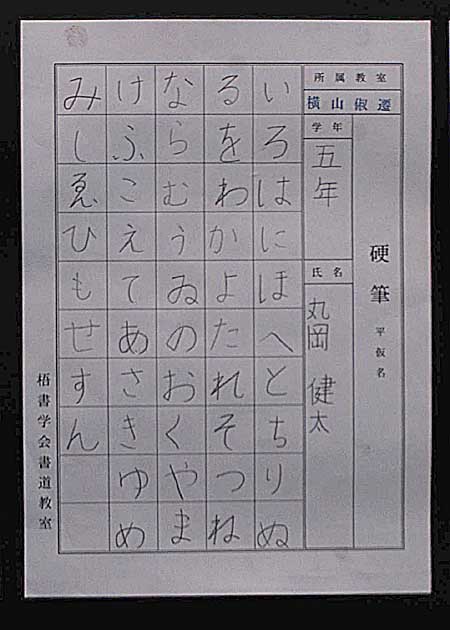 硬筆 平仮名
所属教室
横山俶遷
学年
五年
氏名
丸岡 健太
いろはにほへとちりぬ
るをわかよたれそつね
ならむうゐのおくやま
けふこえてあさきゆめ
みしゑひもせすん
梧書学会書道教室